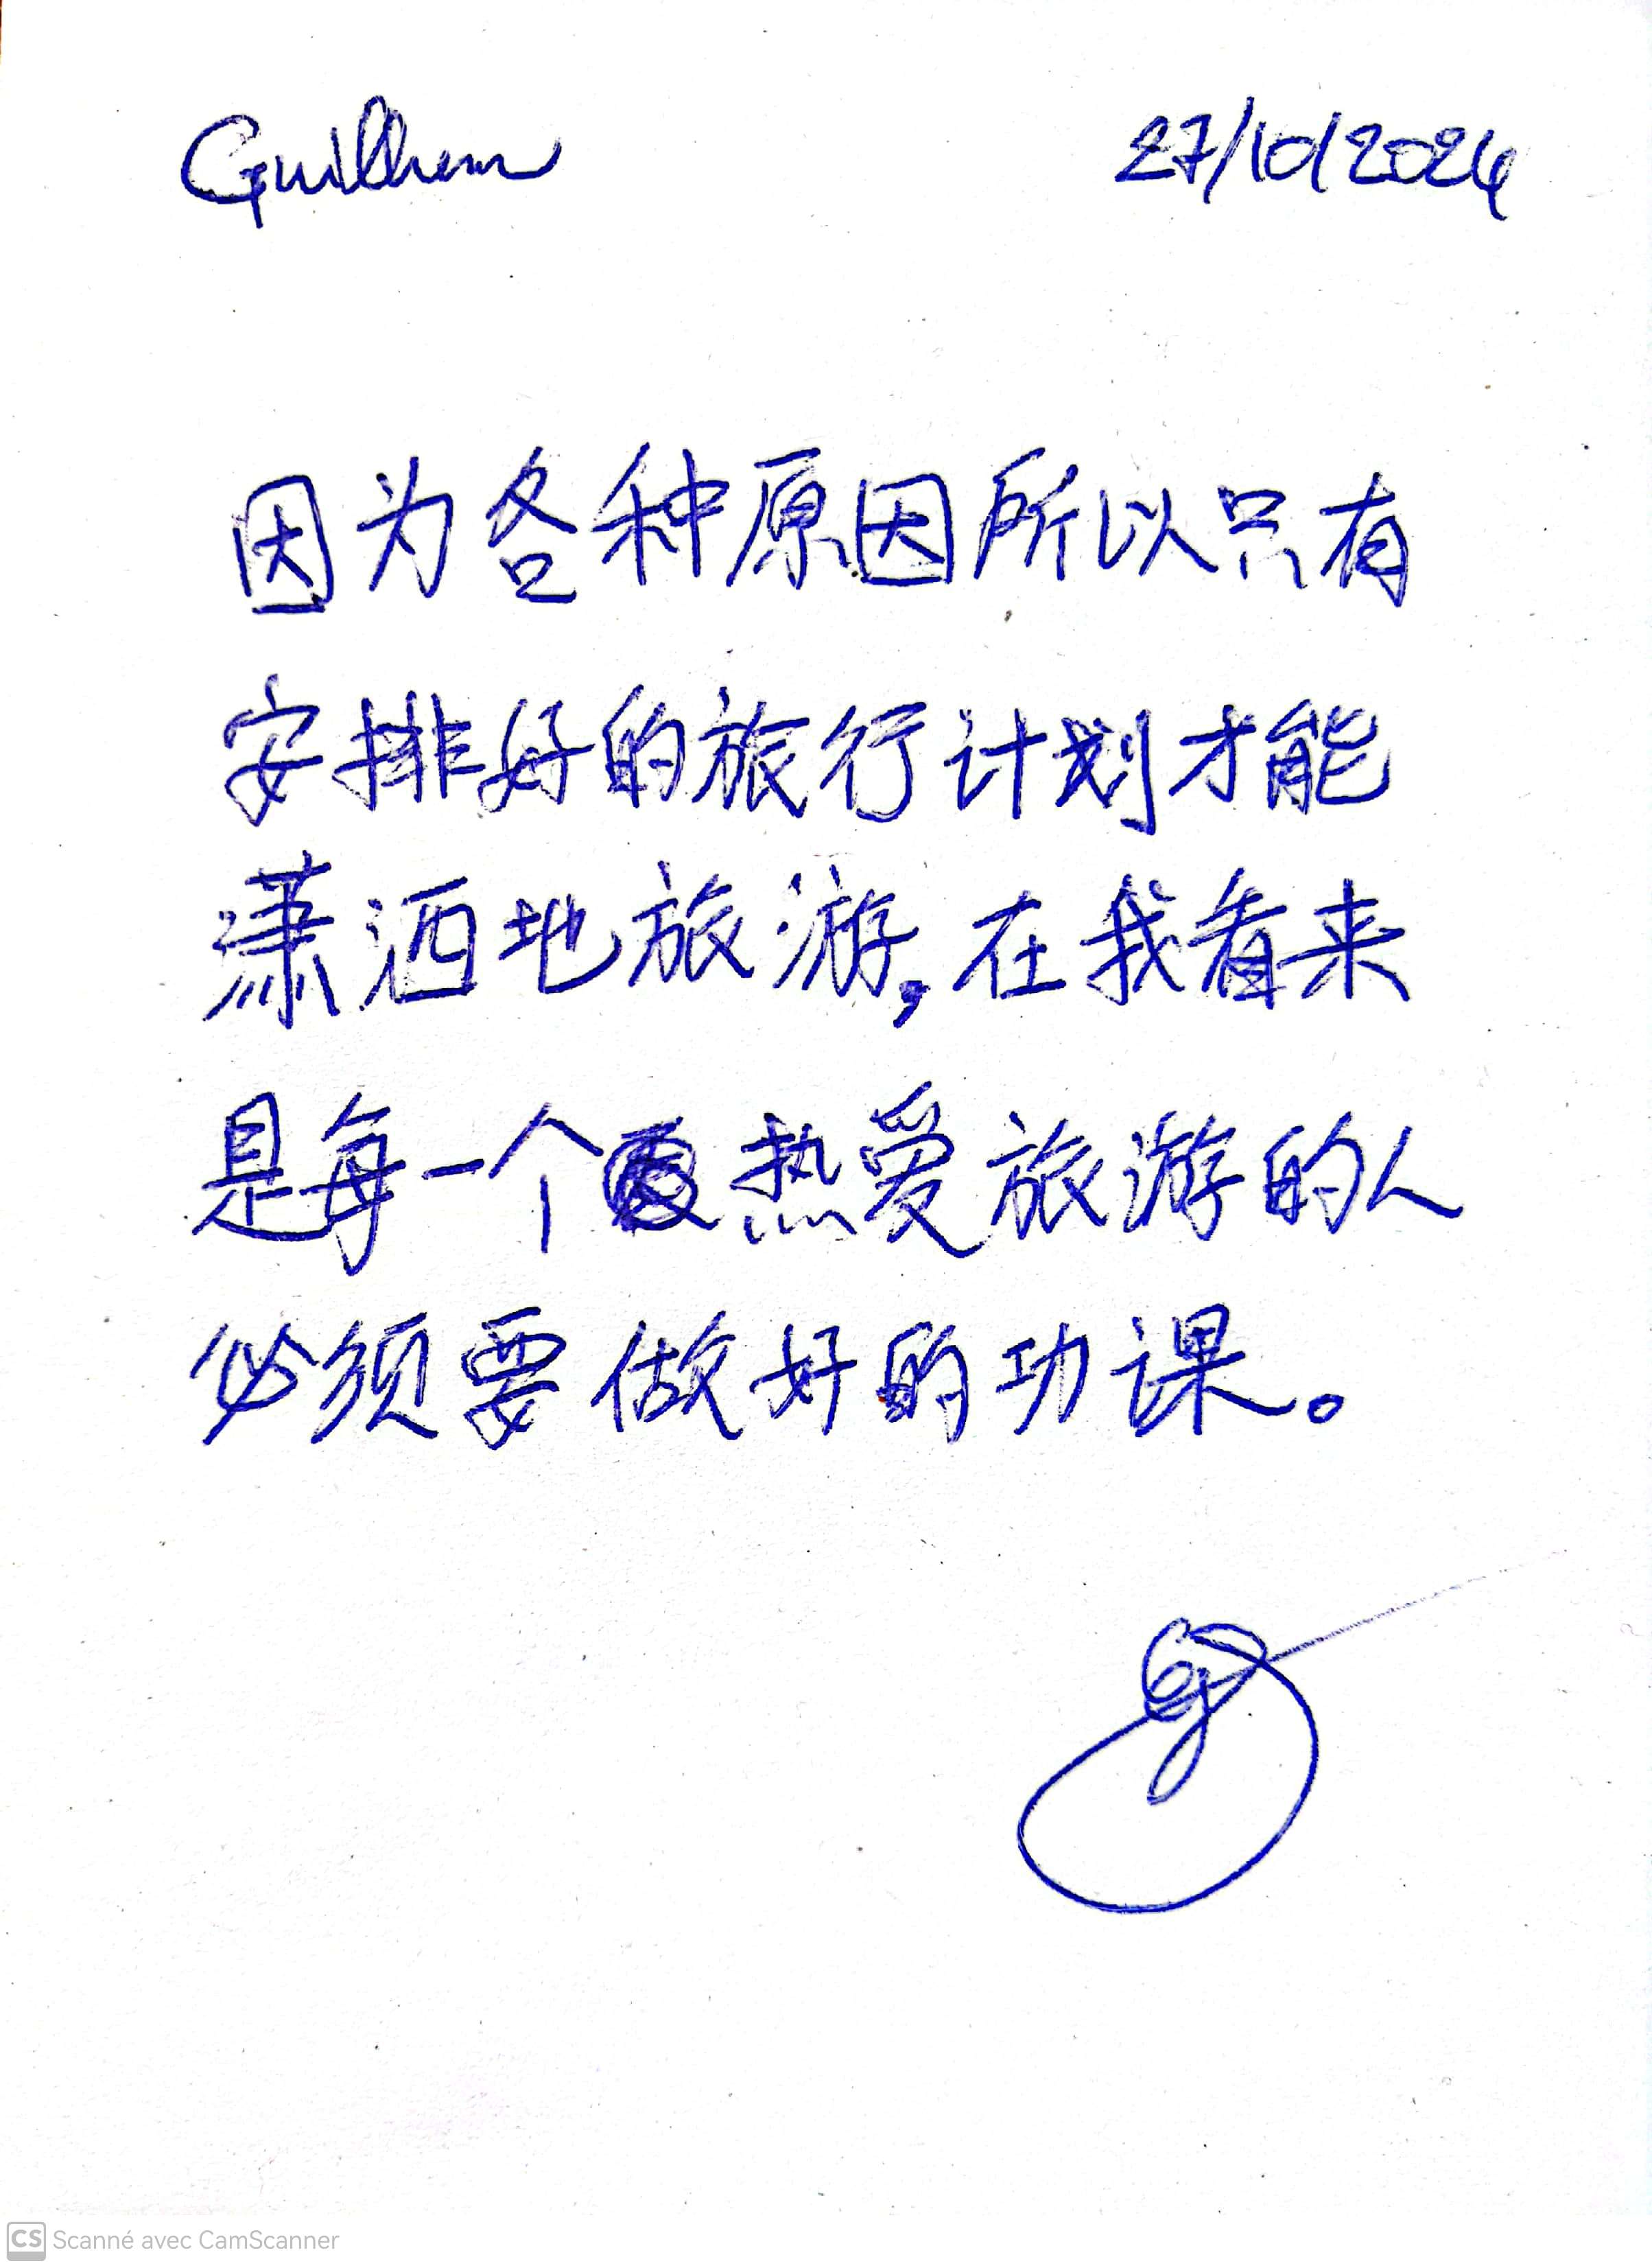 Guilhem 27/10/2024
因为各种原因所以只有
安排好的旅行计划才能
潇洒地旅游,在我看来
是每一个热爱旅游的人
必须要做好的功课。
CS Scanné avec CamScanner